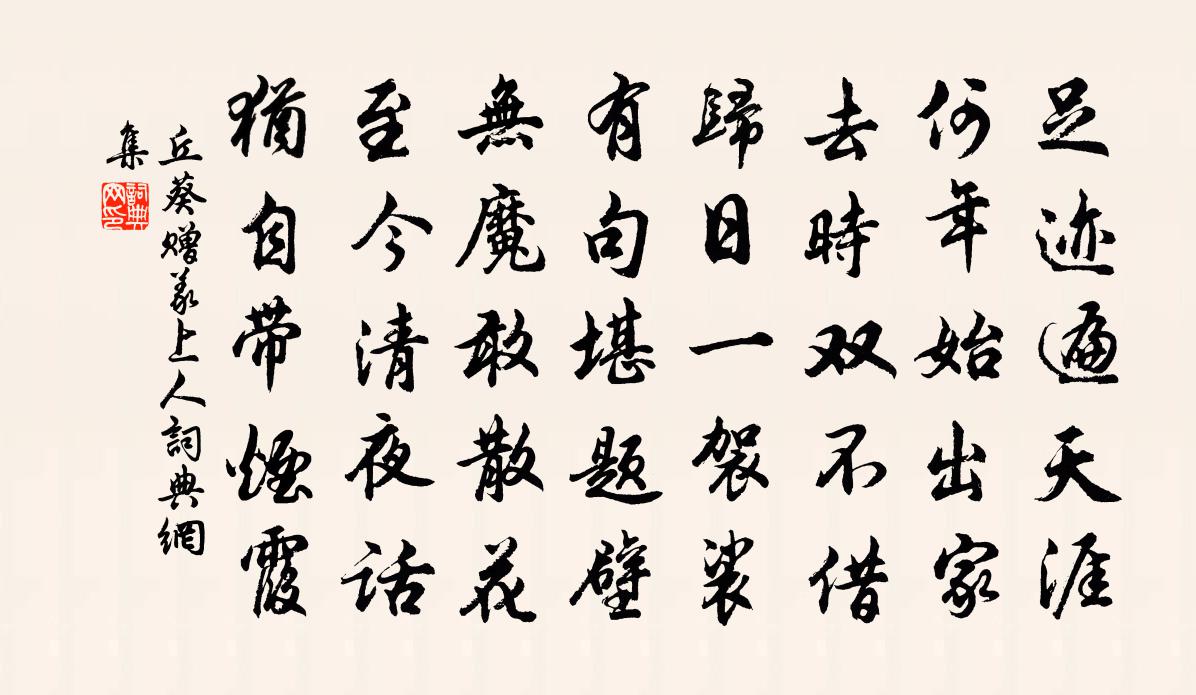 足迹遍天涯
何年始出家
去時双不借
歸日一袈裟
有句堪题壁
無魔敢散花
至今清夜話
猶自带煙霞
丘葵赠羲上人詞典網
集
詞典
网印